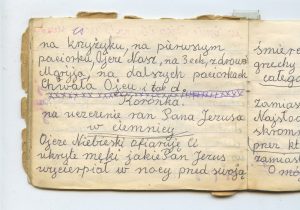 na krzyżyku, na pierwszym
paciorku, Ojcze Nasz, na 3 ech, zdrowaś
Maryja, na dalszych paciorkach
Chwała Ojcu i tak do
Koronka.
na uczczenie ran Pana Jezusa
w ciemnicy
Ojcze Niebieski ofiaruję Ci
ukryte męki jakie Pan Jezus
wycierpiał w nocy przed swoją
śmierc
grzechy
całego
zamias
Najsło
skrom
prez kt
zamias
O mó